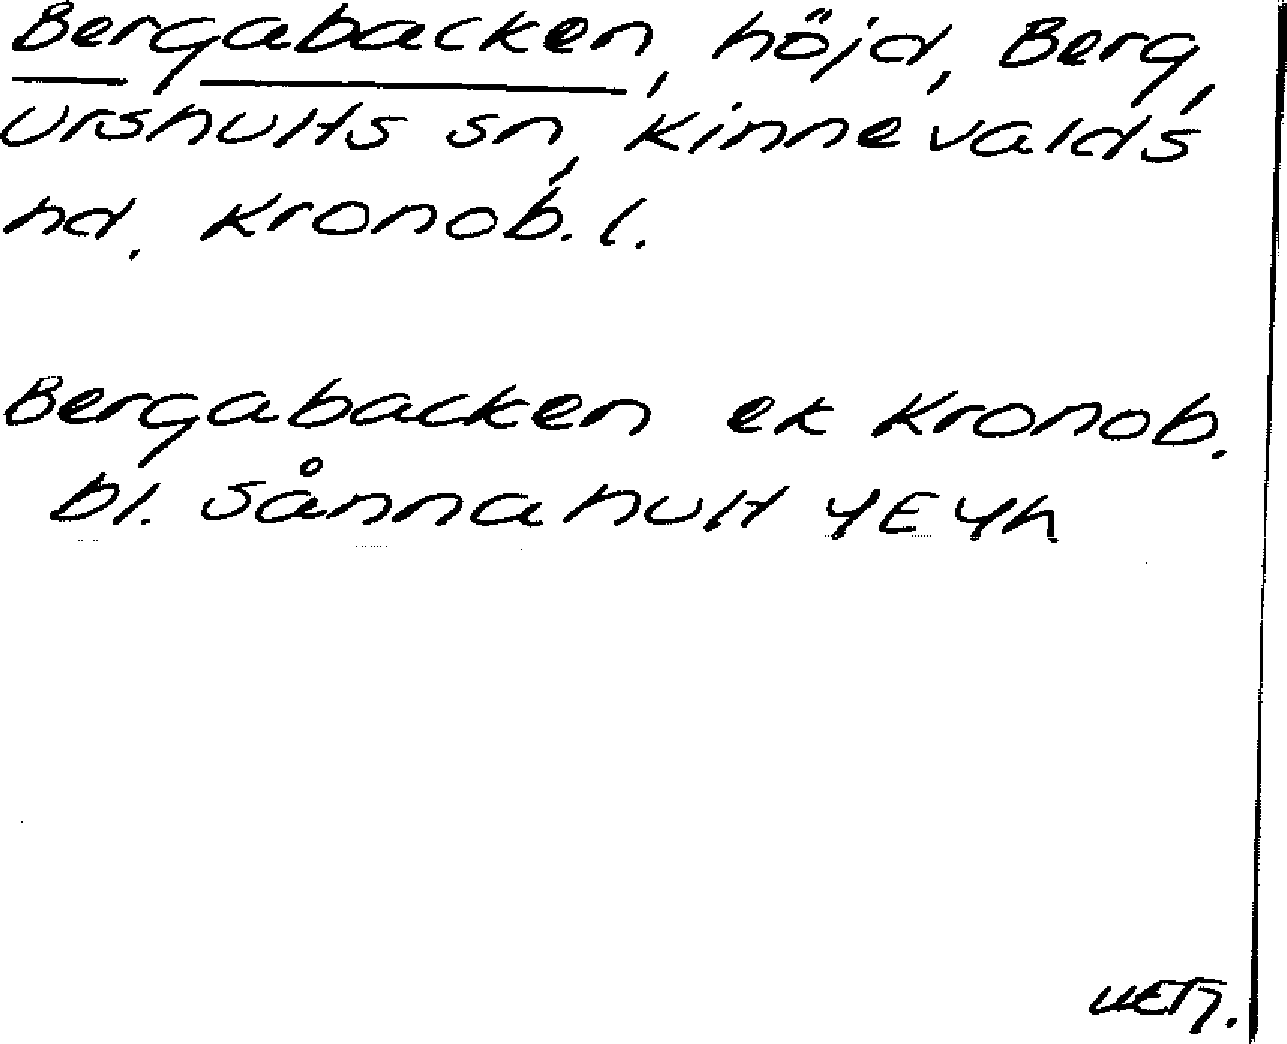 Bergabacken, höjd, Berg,
Urshults sn, Kinnevalds
hd, Kronob. l.
Bergabacken ek Kronob.
bl. Sånnahult 4E4h